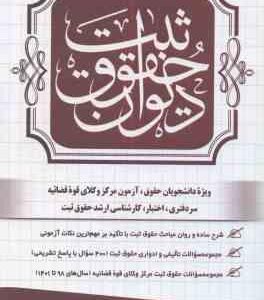 ثبت
حقوق
دیوان
ویژۀ دانشجویان حقوق، آزمون مرکز وکلای قوۀ قضائیه
سردفتری، اختبار، کارشناسی ارشد حقوق ثبت
شرح ساده و روان مباحث حقوق ثبت با تأکید بر مهم‌ترین نکات آزمونی
مجموعه‌سؤالات تألیفی و ادواری حقوق ثبت (۲۰۰ سؤال با پاسخ تشریحی)
مجموعه‌سؤالات حقوق ثبت مرکز وکلای قوۀ قضائیه (سال‌های ۹۸ تا ۱۴۰۱)